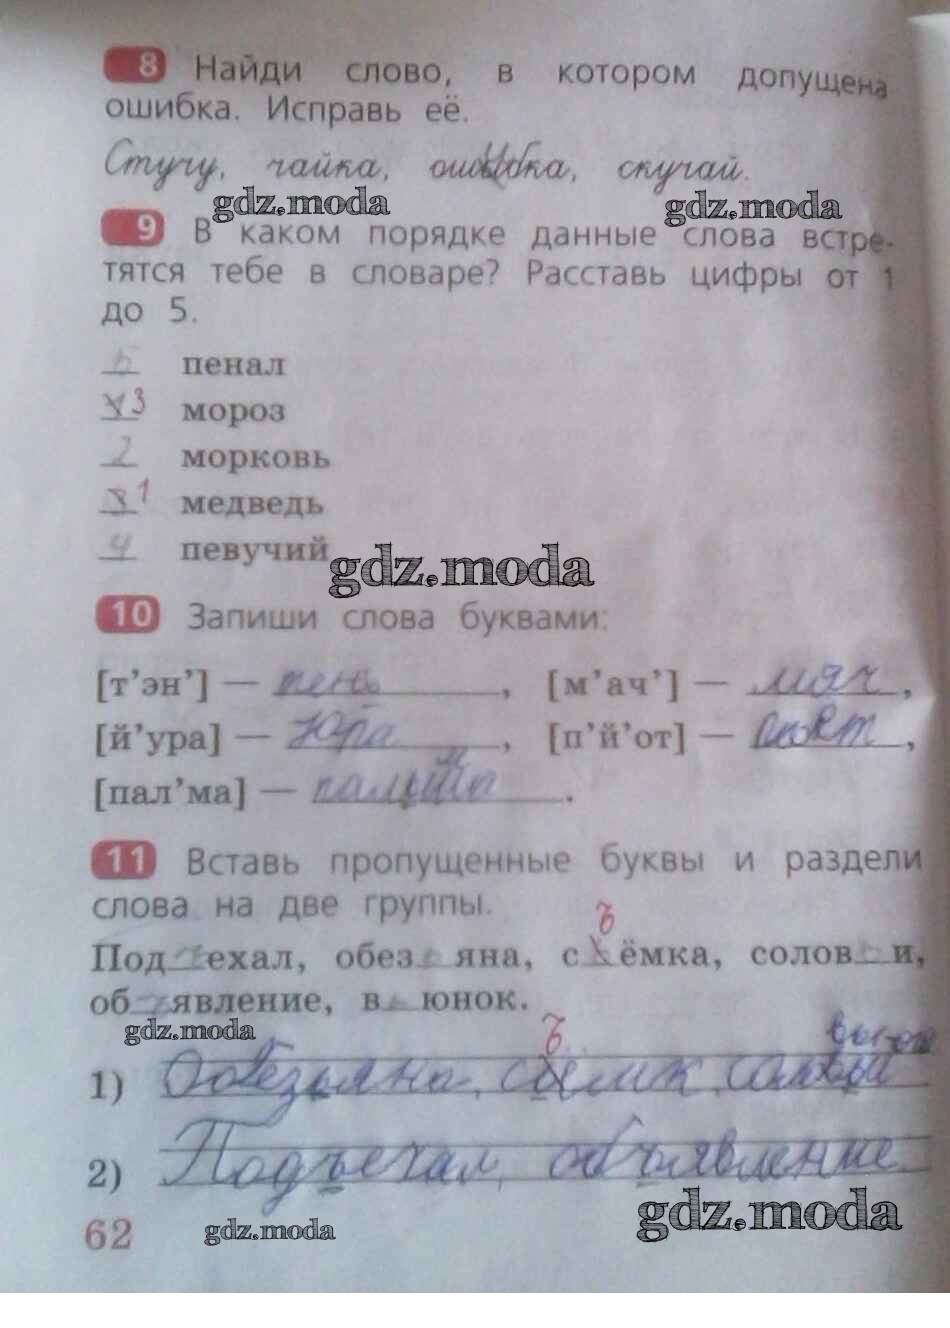 8 Найди слово, в котором допущена
ошибка. Исправь её.
Стучу, чайка, ошыбка, скучай.
gdz.moda gdz.moda
9 В каком порядке данные слова встре-
тятся тебе в словаре? Расставь цифры от 1
до 5.
5 пенал
3 мороз
2 морковь
1 медведь
4 певучий
gdz.moda
10 Запиши слова буквами:
[т'эн'] — тень, [м'ач'] — мяч,
[й'ура] — Юра, [п'й'от] —
[пал'ма] — пальма.
11 Вставь пропущенные буквы и раздели
слова на две группы.
ъ
Под ъ ехал, обез ь яна, с ёмка, солов ь и,
об ъ явление, в ь юнок.
gdz.moda
ъ
1) Обезьяна,
2) Подъехал, объявление
62 gdz.moda gdz.moda